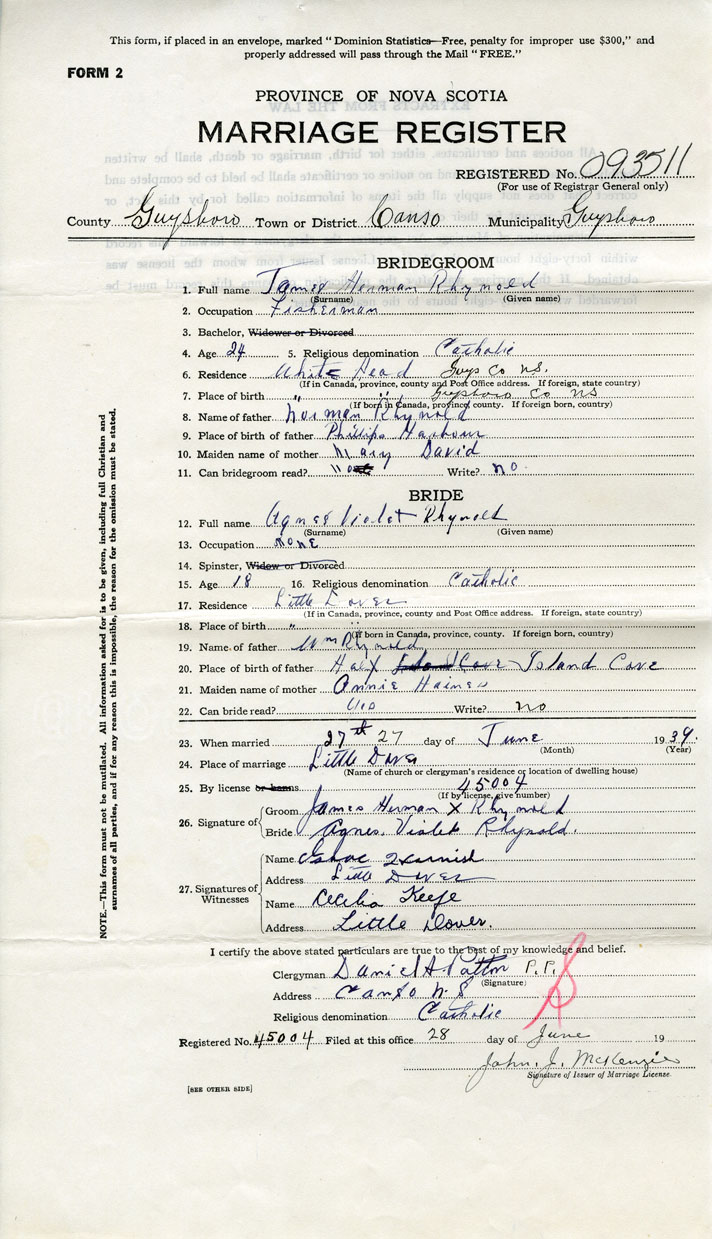 This form, if placed in an envelope, marked "Dominion Statistics—Free, penalty for improper use $300," and
properly addressed will pass through the Mail "FREE."
FORM 2
PROVINCE OF NOVA SCOTIA
MARRIAGE REGISTER
REGISTERED No. 093511
(For use of Registrar General only)
County Guysboro Town or District Canso Municipality Guysboro
BRIDEGROOM
1. Full name James Herman Rhynold
(Surname) (Given name)
2. Occupation Fisherman
3. Bachelor, Widower or Divorced
4. Age 24 5. Religious denomination Catholic
6. Residence White Head Guys Co NS.
(If in Canada, province, county and Post Office address. If foreign, state country)
7. Place of birth " " Guysboro Co NS
(If born in Canada, province, county. If foreign born, country)
8. Name of father Norman Rhynold
9. Place of birth of father Phillips Harbour
10. Maiden name of mother Mary David
11. Can bridegroom read? no Write? no
BRIDE
12. Full name Agnes Violet Rhynold
(Surname) (Given name)
13. Occupation none
14. Spinster, Widow or Divorced
15. Age 18 16. Religious denomination Catholic
17. Residence Little Dover
(If in Canada, province, county and Post Office address. If foreign, state country)
18. Place of birth " "
(If born in Canada, province, county. If foreign born, country)
19. Name of father Wm Rhynold
20. Place of birth of father Halfx Island Cove Island Cove
21. Maiden name of mother Annie Haines
22. Can bride read? Write? no
23. When married 27th 27 day of June 1939.
(Month) (Year)
24. Place of marriage Little Dover
(Name of church or clergyman's residence or location of dwelling house)
25. By license or banns 45004
(If by license, give number)
26. Signature of Groom James Herman X Rhynold
Bride Agnes Violet Rhynold.
27. Signatures of Witnesses
Name
Address Little Dover
Name Cecilia Keefe
Address Little Dover.
I certify the above stated particulars are true to the best of my knowledge and belief.
Clergyman Daniel A Patton P.P.
(Signature)
Address Canso N.S
Religious denomination Catholic
Registered No. 45004 Filed at this office 28 day of June 19
John. J. McKenzie
Signature of Issuer of Marriage License.
[SEE OTHER SIDE]
NOTE.—This form must not be mutilated. All information asked for is to be given, including full Christian and
surnames of all parties, and if for any reason this is impossible, the reason for the omission must be stated.